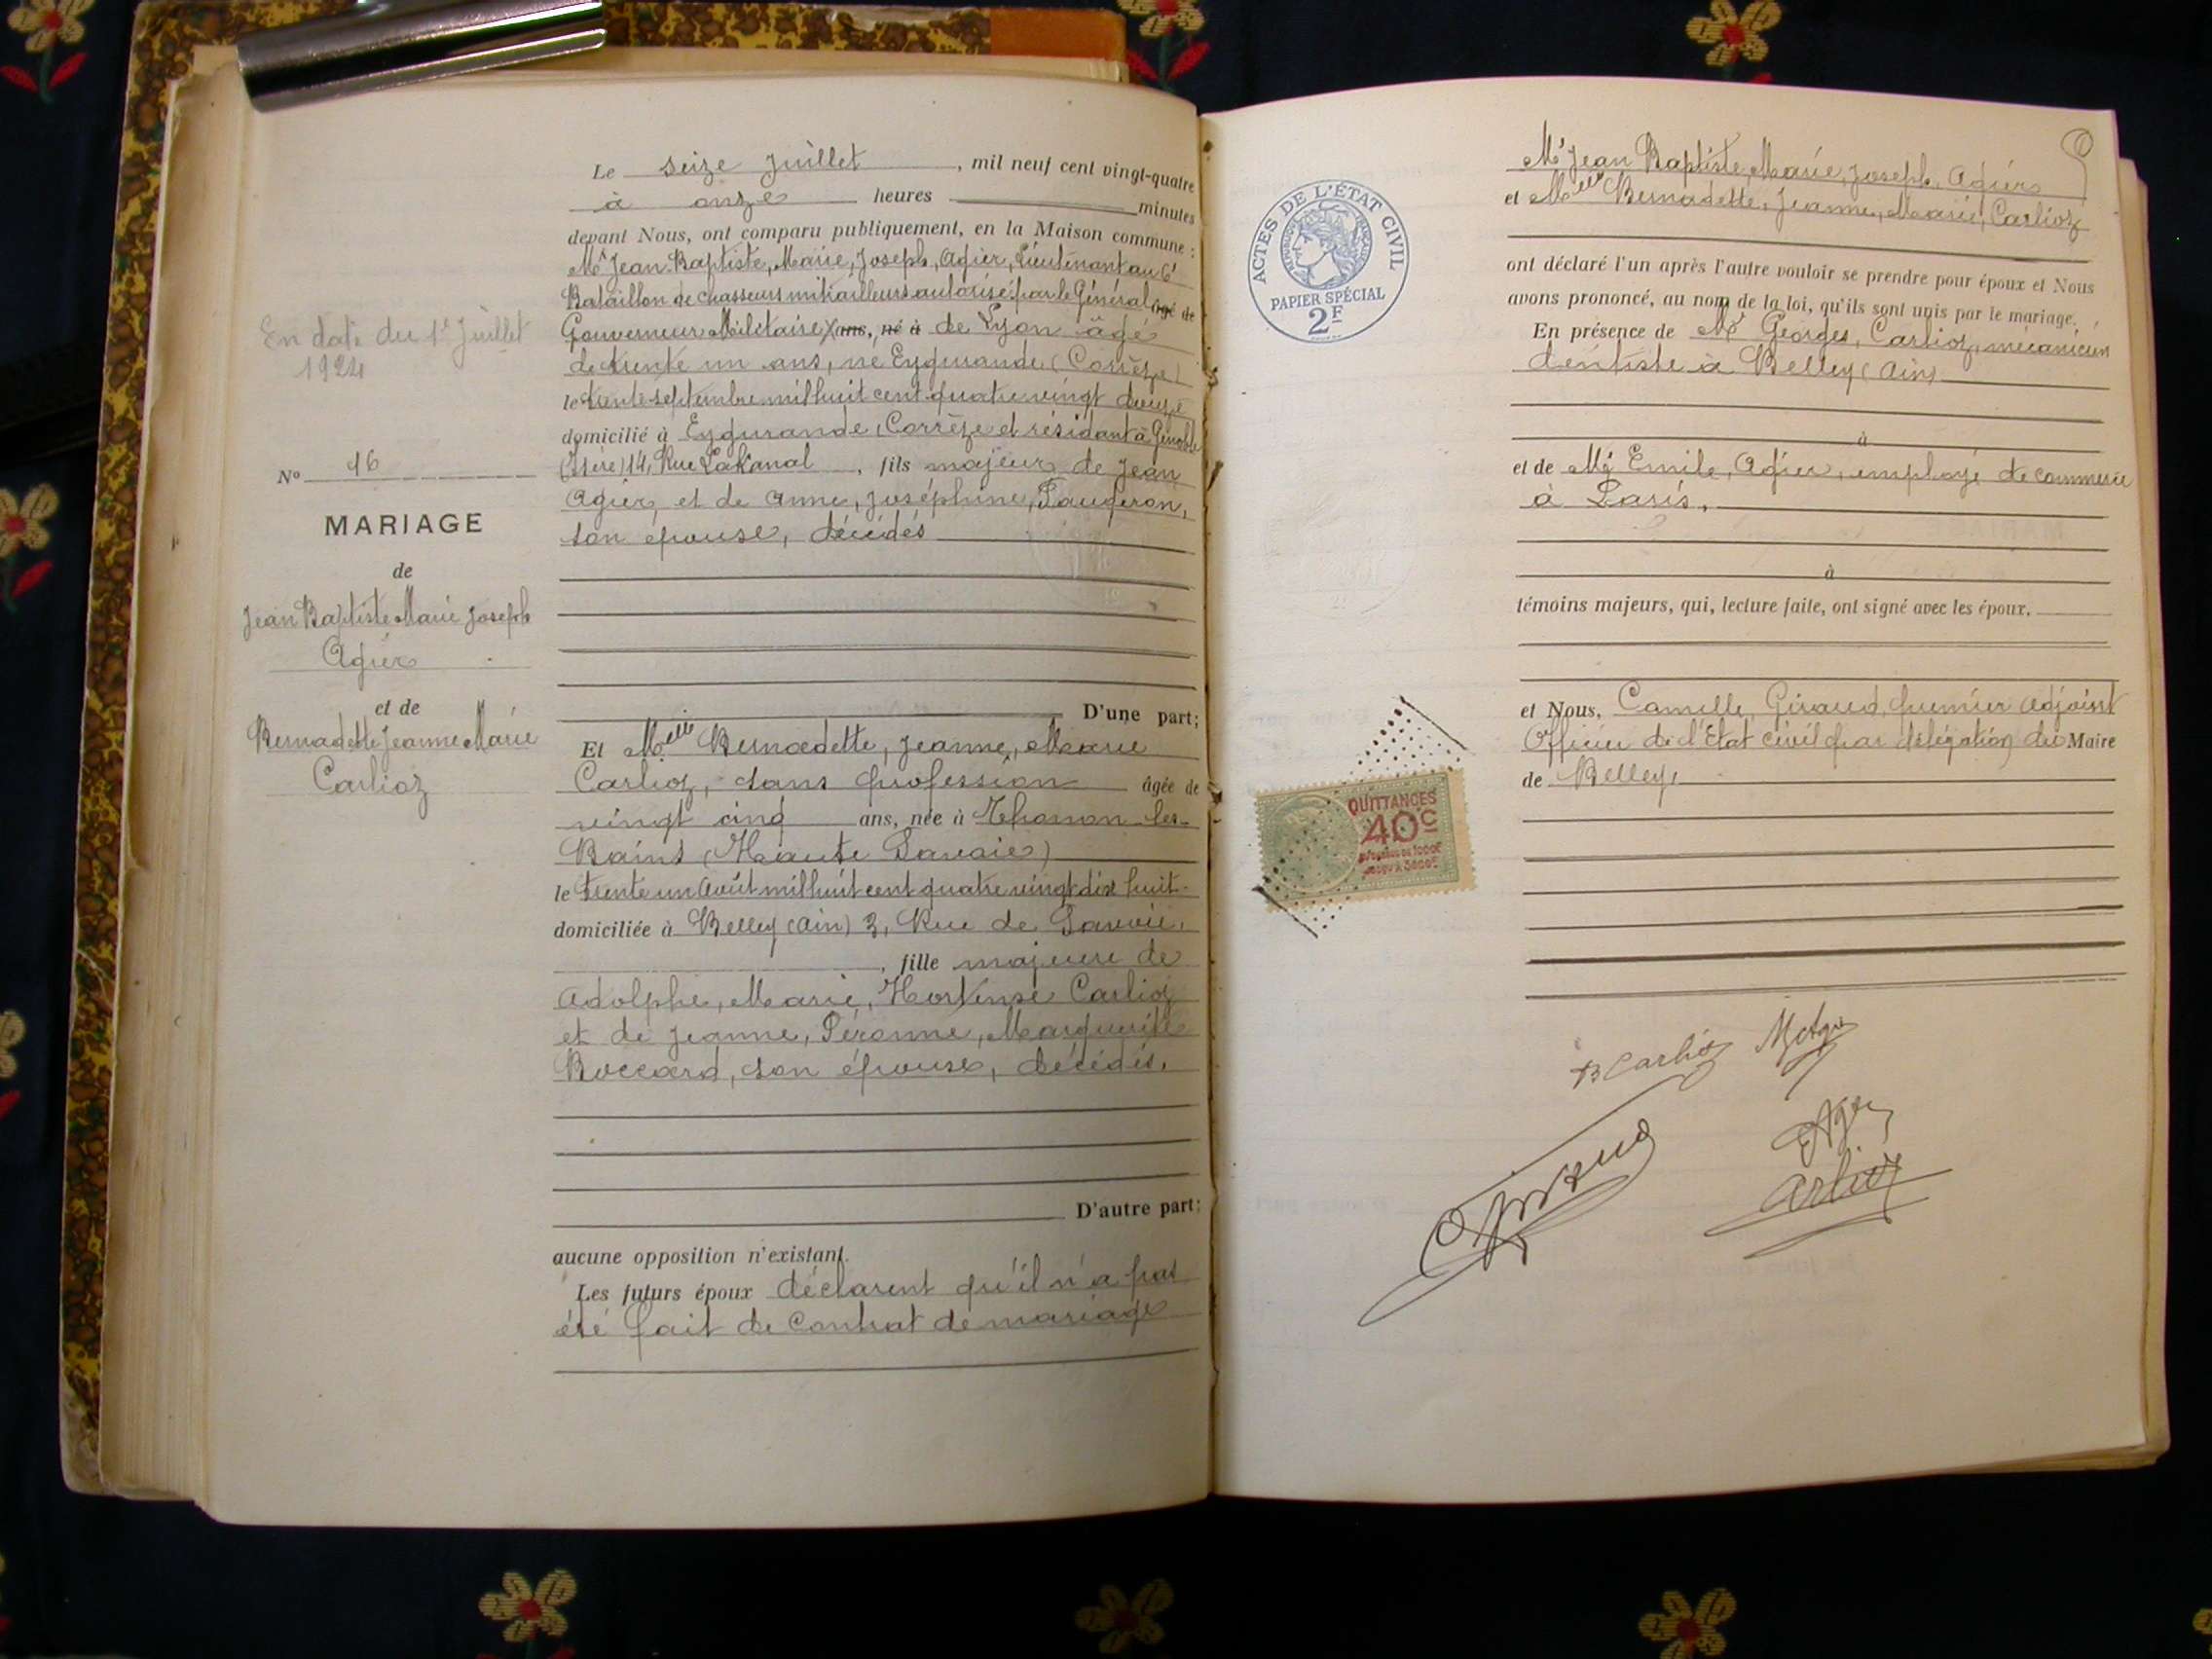 Le seize Juillet, mil neuf cent vingt-quatre
à onze heures minutes
devant Nous, ont comparu publiquement, en la Maison commune :
Mr Jean Baptiste, Marie, Joseph, Agier, Lieutenant au 6e
Bataillon de chasseurs mitrailleurs autorisé par le Général âgé de
Gouverneur Militaire ans, né à de Lyon âgé
de trente un ans, né Eygurande (Corrèze)
le trente septembre mil huit cent quatre vingt douze
domicilié à Eygurande, Corrèze et résidant à Grenoble
(Isère) 14, Rue Lakanal, fils majeur de Jean
Agier, et de Anne, Joséphine, Laugeron,
son épouse, décédés
D'une part;
Et Melle Bernadette, Jeanne, Marie
Carlioz, sans profession âgée de
vingt cinq ans, née à Thonon les-
Bains (Haute Savoie)
le trente un Août mil huit cent quatre vingt dix huit
domiciliée à Belley (Ain) 3, Rue de Savoie,
, fille majeure de
Adolphe, Marie, Hortense Carlioz
et de Jeanne, Péronne, Marguerite
Boccard, son épouse, décédés.
D'autre part;
aucune opposition n'existant.
Les futurs époux déclarent qu'il n'a pas
été fait de contrat de mariage
En date du 1r Juillet
1924
No 16
MARIAGE
de
Jean Baptiste Marie Joseph
Agier
et de
Bernadette Jeanne Marie
Carlioz
Mr Jean Baptiste, Marie, Joseph, Agier
et Melle Bernadette, Jeanne, Marie, Carlioz
ont déclaré l'un après l'autre vouloir se prendre pour époux et Nous
avons prononcé, au nom de la loi, qu'ils sont unis par le mariage.
En présence de Mr Georges, Carlioz, mécanicien
dentiste à Belley (Ain)
à
et de Mr Emile, Agier, employé de commerce
à Paris,
à
témoins majeurs, qui, lecture faite, ont signé avec les époux.
et Nous, Camille Giraud, premier adjoint
Officier de l'Etat civil par délégation du Maire
de Belley,
B Carlioz
Agier
Carlioz
ACTES DE L'ÉTAT CIVIL
RÉPUBLIQUE FRANÇAISE
PAPIER SPÉCIAL
2F
QUITTANCES
40c